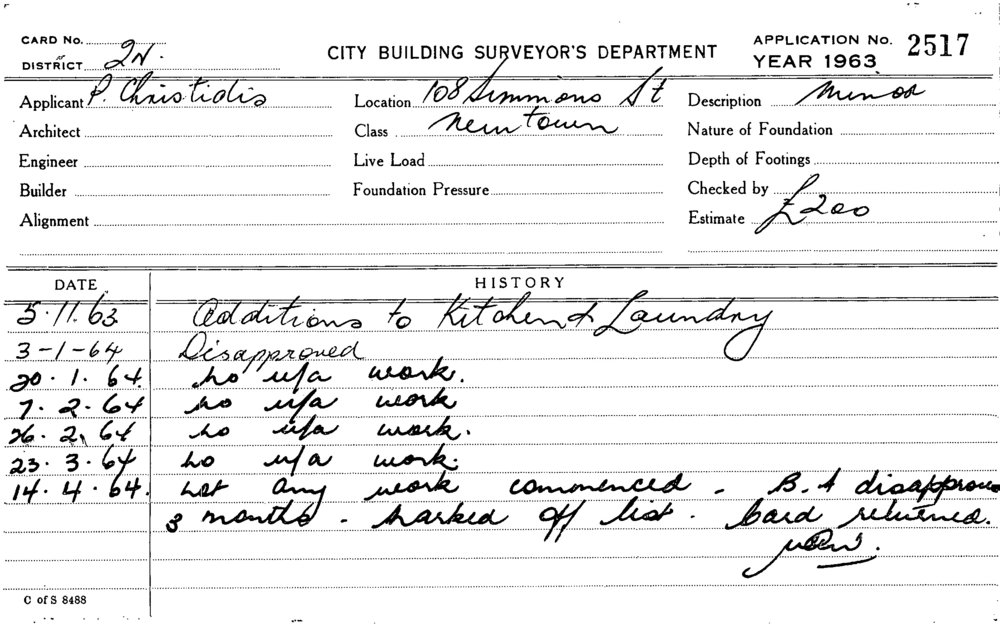 CARD No.
or DISTRICT 2N.
CITY BUILDING SURVEYOR'S DEPARTMENT
APPLICATION No. 2517
YEAR 1963
Applicant P. Christidis
Location 108 Simmons St
Description Minor
Architect
Class Newtown
Nature of Foundation
Engineer
Live Load
Depth of Footings
Builder
Foundation Pressure
Checked by
Alignment
Estimate £200
DATE HISTORY
5.11.63 Additions to Kitchen & Laundry
3-1-64 Disapproved
20.1.64 no u/a work.
7.2.64 no u/a work
26.2.64 no u/a work.
23.3.64 no u/a work.
14.4.64. not any work commenced - B.A disapproved
3 months - marked off list. Card returned.
C of S 8488